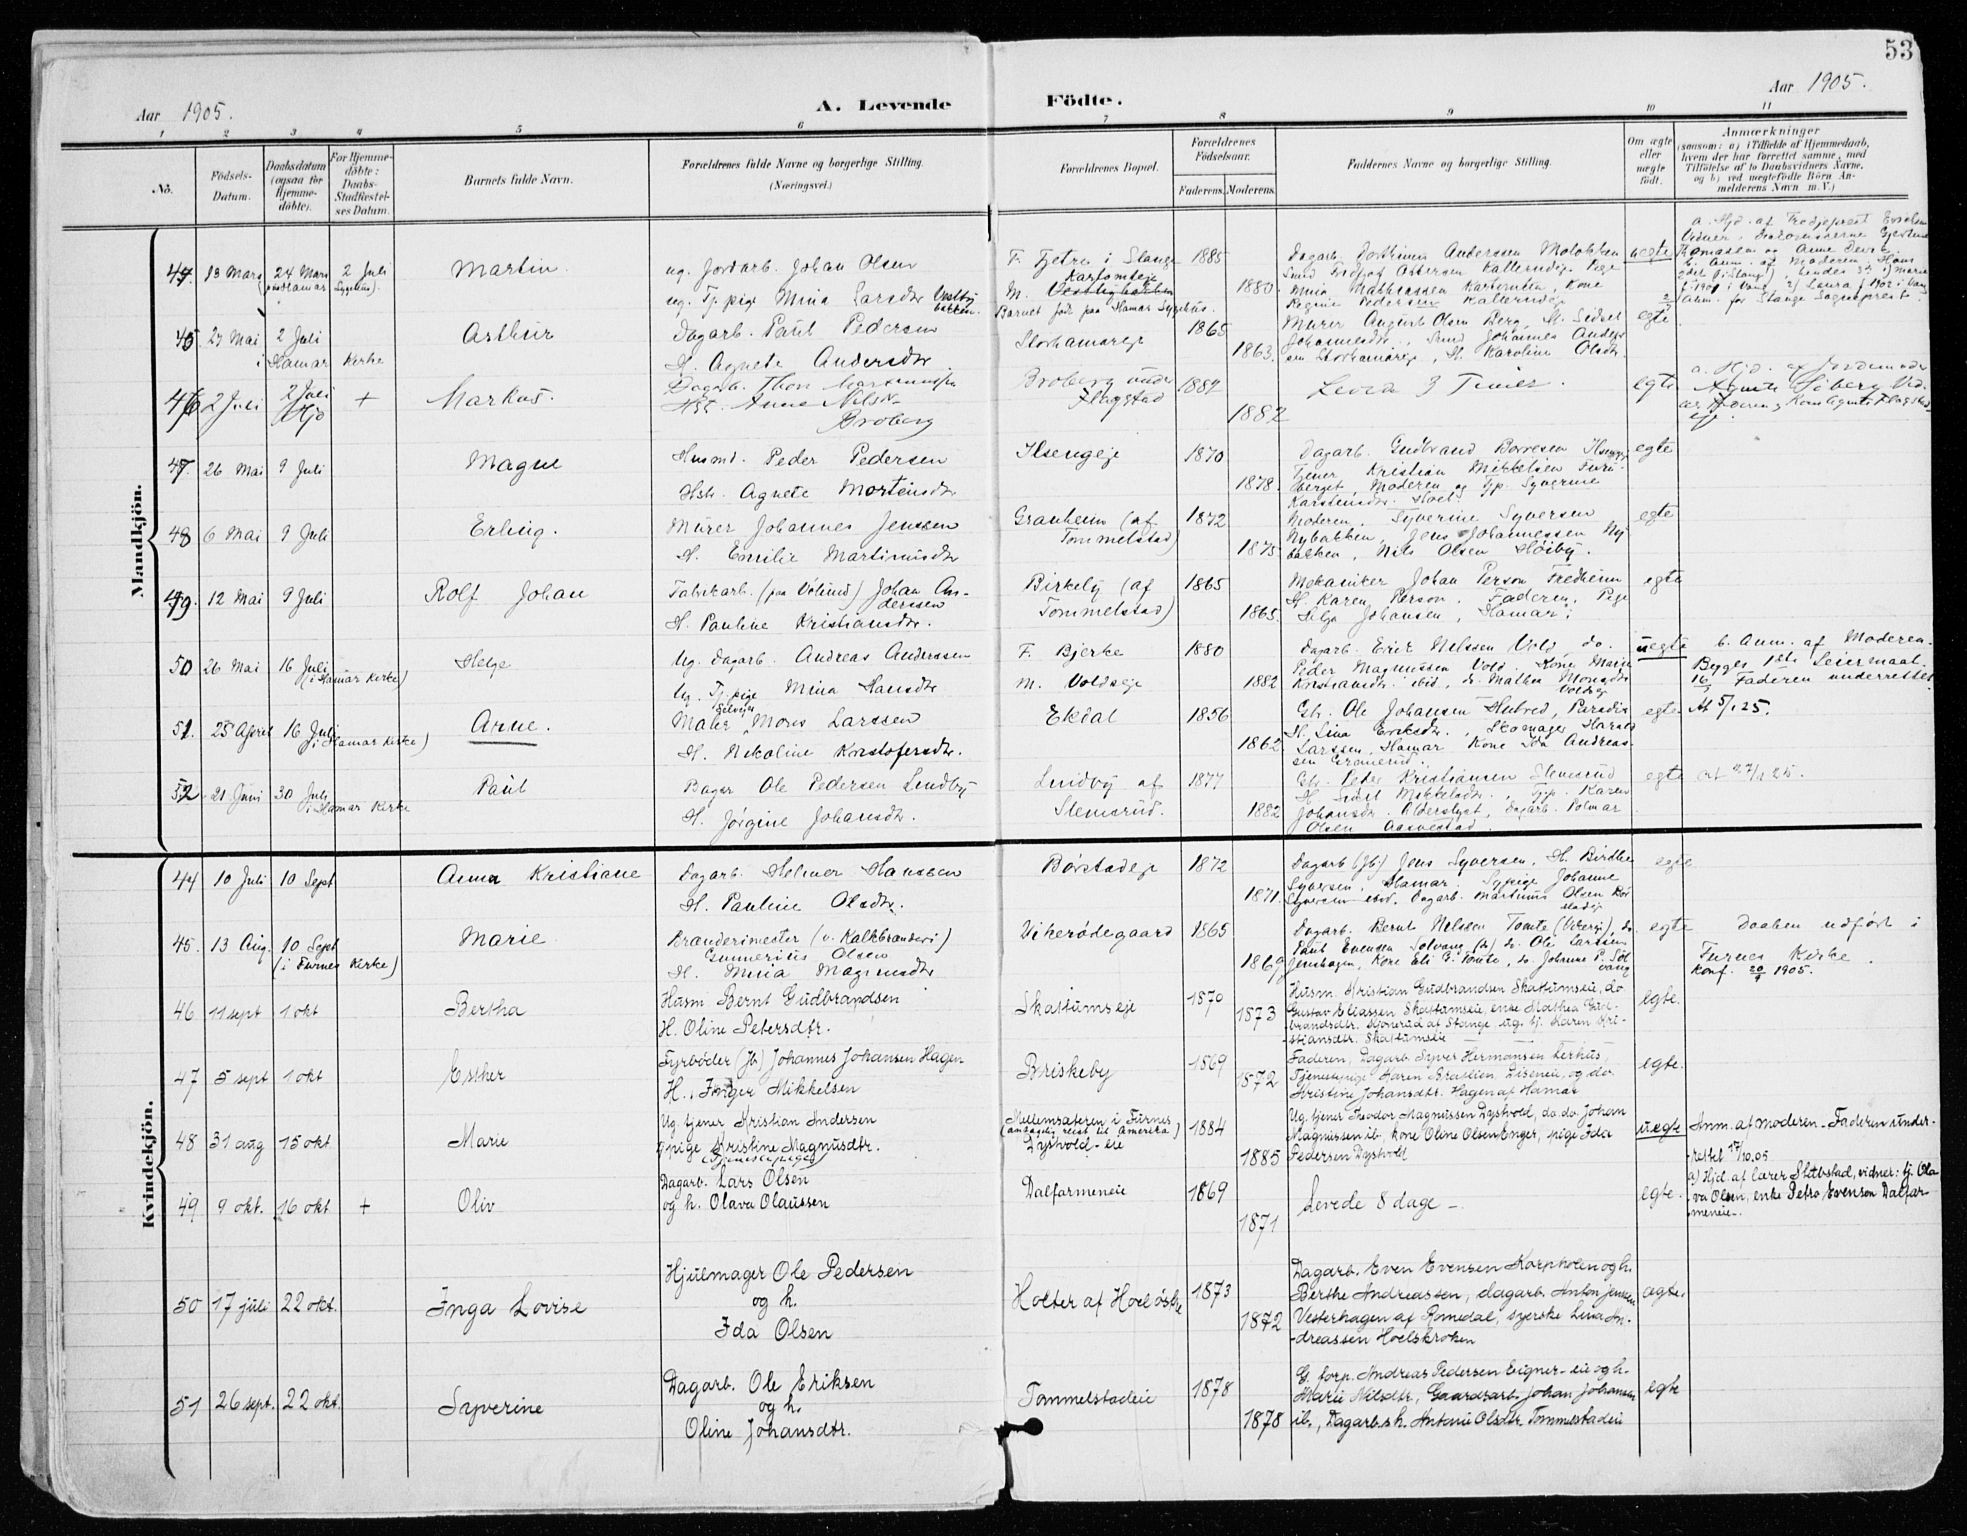 53
Aar 1905.
A. Levende
Födte.
Aar 1905.
1 2 3 4 5 6 7 8 9 10 11
No.
Födsels-
Datum.
Daabsdatum
(ogsaa for
Hjemme-
döbte).
For Hjemme-
döbte:
Daabs-
Stadfæstel-
ses Datum.
Barnets fulde Navn.
Forældrenes fulde Navne og borgerlige Stilling.
(Næringsvei.)
Forældrenes Bopæl.
Forældrenes
Födselsaar.
Faderens.
Moderens.
Faddernes Navne og borgerlige Stilling.
Om ægte
eller
uægte
födt.
Anmærkninger
(saasom: a) i Tilfælde af Hjemmedaab,
hvem der har forrettet samme, med
Tilföielse af to Daabsvidners Navne,
og b) ved uægtefödte Börn An-
melderens Navn m. V.)
Mandkjön.
44. 13 Mars 24 Mars 2 Juli
Martin.
ug. Jordarb. Johan Olsen
ug. Tj.pige Mina Larsdtr
F. Tjetre i Stange
M.
Barnet født paa Hamar Sygehus.
1885
1880.
uegte
45 27 Mai 2 Juli
i Hamar Kirke
Arthur
Dagarb. Paul Pedersen
H. Agnete Andersdtr
Storhamareje
1865
1863.
Murer August Olsen Berg, H. Sidsel
Johannesdtr., Smed Johannes Anders
sen Storhamareje, H. Karoline Olsdtr.
egte
46 2 Juli 2 Juli
Hjd
+
Markus.
Dagarb. Thor
Hst. Anne Nilsdr
Broberg
Broberg under
Flagstad
1882
1882
Leved 3 Timer.
egte
47. 26 Mai 9 Juli
Magne
Husmd. Peder Pedersen
Hstr. Agnete Mortensdtr
Ilsengeje
1870
1878.
Dagarb. Gudbrand Borresen Ilsengeje
Tjener Kristian Mikkelsen Furu-
berget, Moderen og Tjp. Syverine
Karstensdtr. Hoel.
egte
48 6 Mai 9 Juli
Erling.
Murer Johannes Jenssen
H. Emilie Martinusdtr
Granheim (af
Tommelstad)
1872
1875
Moderen, Syverine Syversen
Nybakken, Jens Johannessen Ny
bakken, Nils Olsen Høiby.
egte
49. 12 Mai 9 Juli
Rolf Johan
Fabrikarb. (paa Vølund) Johan An-
derssen
H. Pauline Kristiansdtr.
Birkely (af
Tommelstad)
1865
1865.
Mekaniker Johan Person Fredheim
H. Karen Person, Faderen, Pige
Helga Johansen, Hamar.
egte
50 26 Mai 16 Juli
(i Hamar Kirke)
Helge
Ug. Dagarb. Andreas Anderssen
Ug. Tj.pige Mina Hansdtr
F. Bjerke
M. Voldseje
1880
1882
Dagarb. Erik Nelssen Vold, do.
Peder Magnussen Vold. Kone Marie
Kristiansdtr. ibid, do. Mathea Monsdtr
Voldseje
uegte
b. Anm. af Moderen.
Begges 1ste Leiermaal.
16/7 Faderen underrettet
51. 25 April 16 Juli
(i Hamar Kirke)
Arne.
Maler Mons Larssen
H. Nikoline Kristofersdtr.
Ekdal
1856
1862
Gbr. Ole Johansen Hulred, Paradis
H. Lina Eriksdtr., Skomager Harald
Larssen, Hamar Kone Ida Andreas-
sen Grønerud.
egte
At 5/1 25.
52 21 Juni 30 Juli
i Hamar Kirke
Paul
Bager Ole Pedersen Lundby
H. Jørgine Johansdtr.
Lundby af
Stensrud.
1877
1882
Gbr. Peder Kristiansen Stensrud
H. Sidsel Mikkelsdtr., Tjp. Karen
Johansdtr. Alderslyst, Dagarb. Holmar
Olsen Aasvestad.
egte
at 27/1 25.
Kvindekjön.
44 10 Juli 10 Sept
Anna Kristiane
Dagarb. Helmer Hanssen
H. Pauline Olsdtr.
Børstadeje
1872
1871.
Dagarb (Jb.) Jens Syversen. H. Birdthe
Syversen, Hamar. Sypige Johanne
Syversen ibid. Dagarb. Martinus Olsen Bør
stadeje
egte
45. 13 Aug. 10 Sept
(i Furnes Kirke)
Marie
Branderimester (v. Kalkbranderi)
Gunnerius Olsen
H. Mina Magnusdtr
Vikerødegaard
1865
1869
Dagarb. Bernt Nelssen Tomte (Vikerej), do.
Paul Evensen Solvang (do) do. Ole Larssen
Jenshagen, Kone Eli E. Tomte, do. Johanne P. Sol
vang
egte
Daaben udført i
Furnes Kirke.
Konf. 20/9 1905.
46 11 sept 1 okt
Bertha
Husm Bernt Gudbrandsen
H. Oline Petersdtr.
Skattumseje
1870
1873
Husm. Kristian Gudbrandsen Skattumseie, do
Gustav Eliassen Skattumseie, enke Mathea Gud-
brandsdtr. Bjønerud af Stange, ug. tj. Karen Kri-
stiansdtr. Skattumseie
egte.
47 5 sept 1 okt
Esther
Fyrbøder (Jb) Johannes Johansen Hagen
H. Inger Mikkelsen
Briskeby
1869
1872
Faderen, Dagarb. Syver Hermansen Lerhus,
Tjenestepige Karen Braatlien, Liseneie, og do.
Kristine Johansdtr. Hagen af Hamar
egte.
48 31 aug 15 okt
Marie
Ug. tjener Kristian Andersen
pige Kristine Magnusdtr.
(Tjenestepige)
Mellemsæteren i Furnes
(antagelig reist til Amerika)
Dystvold-eie
1884
1885
Ug. tjener Teodor Magnussen Dystvold, do. do. Johan
Magnussen ib. kone Oline Olsen Enger, pige Ida
Pedersen Dystvold
uegte
Anm. af moderen - Faderen under-
rettet 17/10.05
49 9 okt. 16 okt +
Oliv
Dagarb. Lars Olsen
og h. Olava Olaussen
Dalfarmeneie
1869
1871
Levede 8 dage —
egte.
a) Hjd. af lærer Slebstad, vidner: tj. Ola
va Olsen, enke Petra Evensen Dalfar-
meneie.
50 17 juli 22 okt.
Inga Lovise
Hjulmager Ole Pedersen
og h.
Ida Olsen
Holter af Hoel østre
1873
1872
Dagarb. Even Evensen Korpholen og h.
Berthe Andreassen, dagarb. Anton Jenssen
Vesterhagen af Romedal, syerske Lina An-
dreassen Hoelskroken
ægte.
51 26 sept. 22 okt.
Syverine
Dagarb. Ole Eriksen
og h.
Oline Johansdtr.
Tommelstadeie
1878
1878
G. forp. Andreas Pedersen Eigner-eie og h.
Marie Nilsdtr., Gaardsarb. Johan Johansen
ib., Dagarb.s h. Antonie Olsdtr. Tommelstadeie
egte